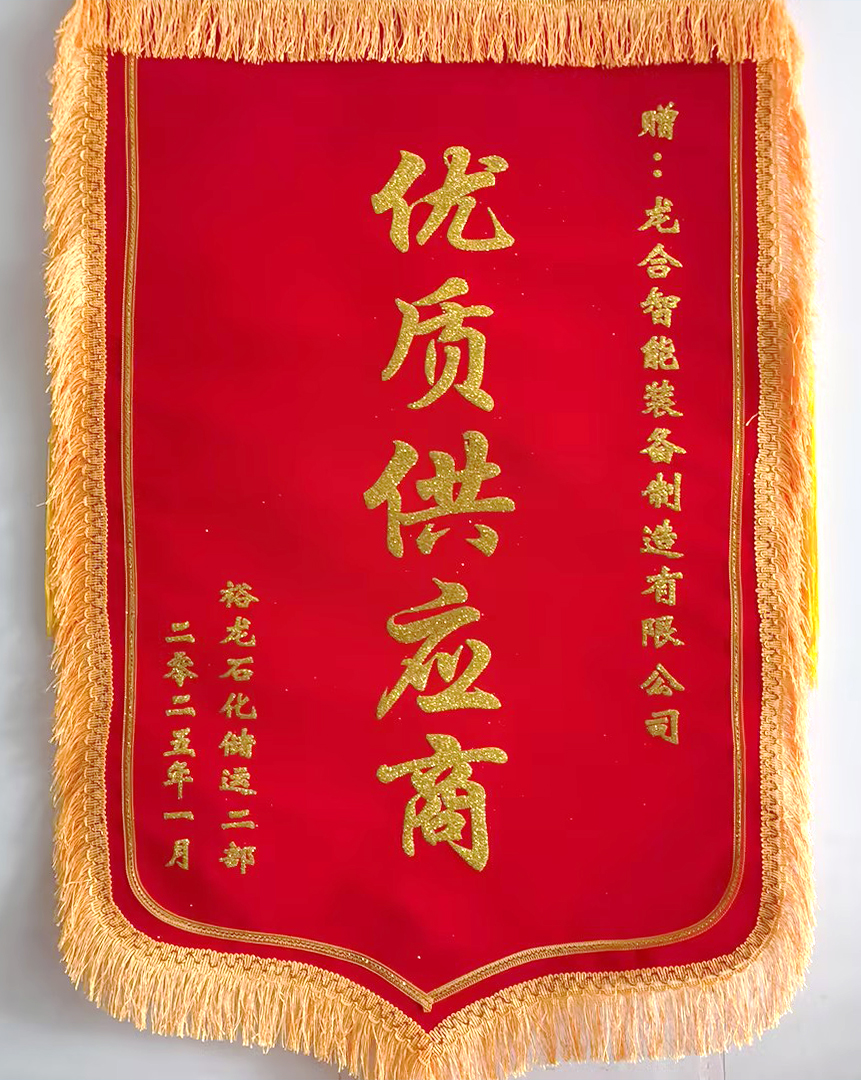 赠：龙合智能装备制造有限公司
优质供应商
裕龙石化储运二部
二零二五年一月